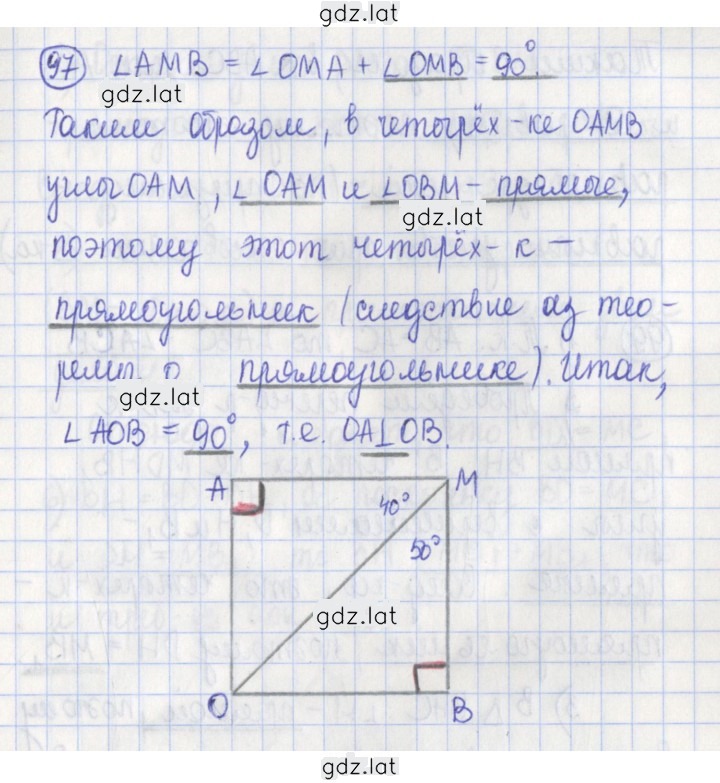 gdz.lat
97 ∠AMB = ∠OMA + ∠OMB = 90°.
gdz.lat
Таким образом, в четырёх-ке OAMB
углы OAM, ∠OAM и ∠OBM - прямые,
gdz.lat
поэтому этот четырёх-к —
прямоугольник (следствие из тео-
о прямоугольнике). Итак,
gdz.lat
∠AOB = 90°, т.е. OA⊥OB.
A M
40°
50°
gdz.lat
O B
gdz.lat